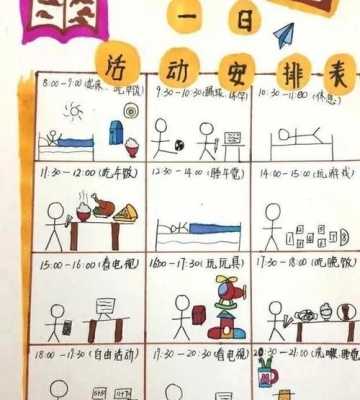 一日
活动安排表
8:00-9:00(起床、吃早饭)
9:30-10:30(
10:30-11:00(休息)
11:30-12:00(吃午饭)
12:30-14:00(睡午觉)
14:00-15:00(玩游戏)
15:00-16:00(看电视)
16:00-17:30(玩玩具)
17:30-18:00(吃晚饭)
18:00-19:30(自由活动)
19:30-20:30(看电视)
20:30-21:00(洗漱、睡觉